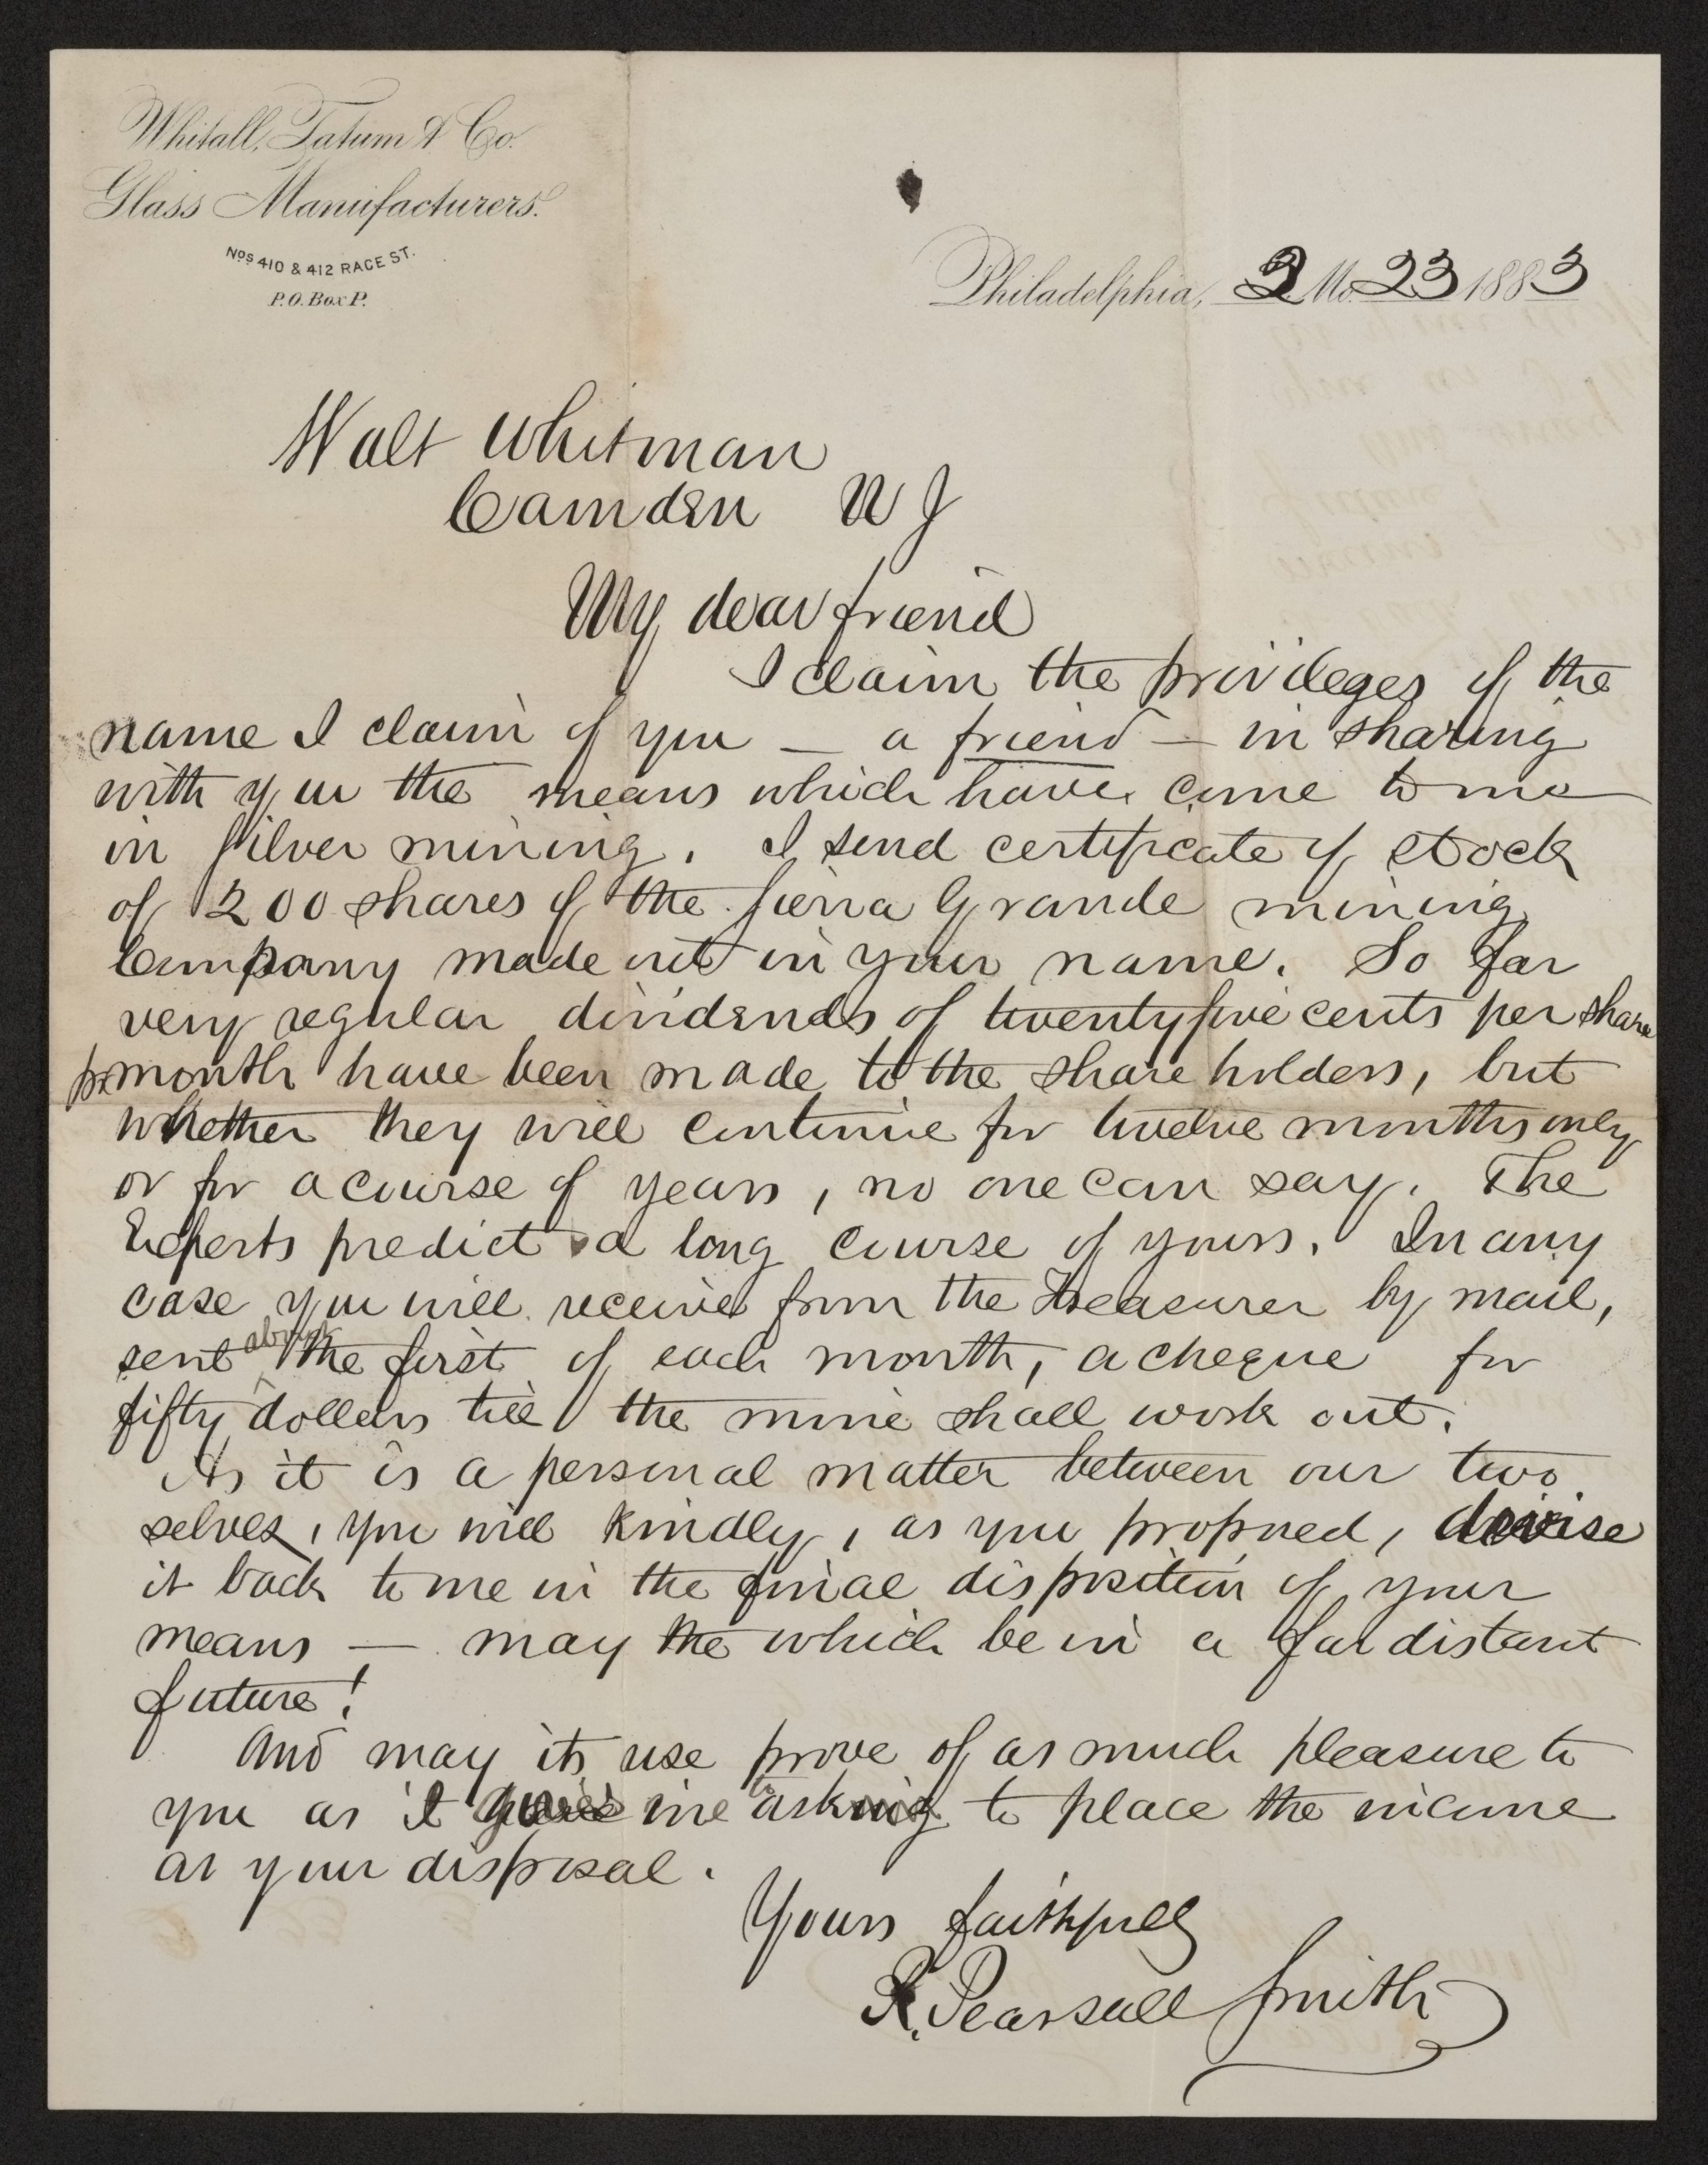 Whitall, Tatum & Co.
Glass Manufacturers.
Nos 410 & 412 RACE ST.
P.O. Box P.
Philadelphia, 2 Mo. 23 1883
Walt Whitman
Camden N J
My dear friend
I claim the privileges of the
name I claim of you — a friend — in sharing
with you the means which have come to me
in Silver mining. I send certificate of stock
of 200 shares of the Sierra Grande mining
Company made out in your name. So far
very regular dividends of twenty five cents per share
pr month have been made to the share holders, but
whether they will continue for twelve months only
or for a course of years, no one can say. The
Experts predict a long course of years. In any
case you will receive from the Treasurer by mail,
sent about the first of each month, a cheque for
fifty dollars till the mine shall work out.
As it is a personal matter between our two
selves, you will kindly, as you proposed, devise
it back to me in the final disposition of your
means — may the which be in a far distant
future!
And may its use prove of as much pleasure to
you as it gives me to ask to place the income
at your disposal.
Yours faithfully
R. Pearsall Smith